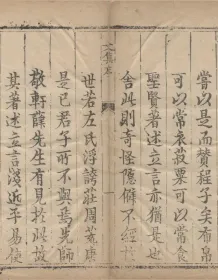 嘗以是而質程子矣布帛
可以常衣菽粟可以常食
聖賢著述立言亦猶是也
舍此則奇怪隱僻不經
世若左氏浮誇莊周荒唐
是已君子所不與焉先師
敬軒薛先生有見於此故
其著述立言淺近平易使